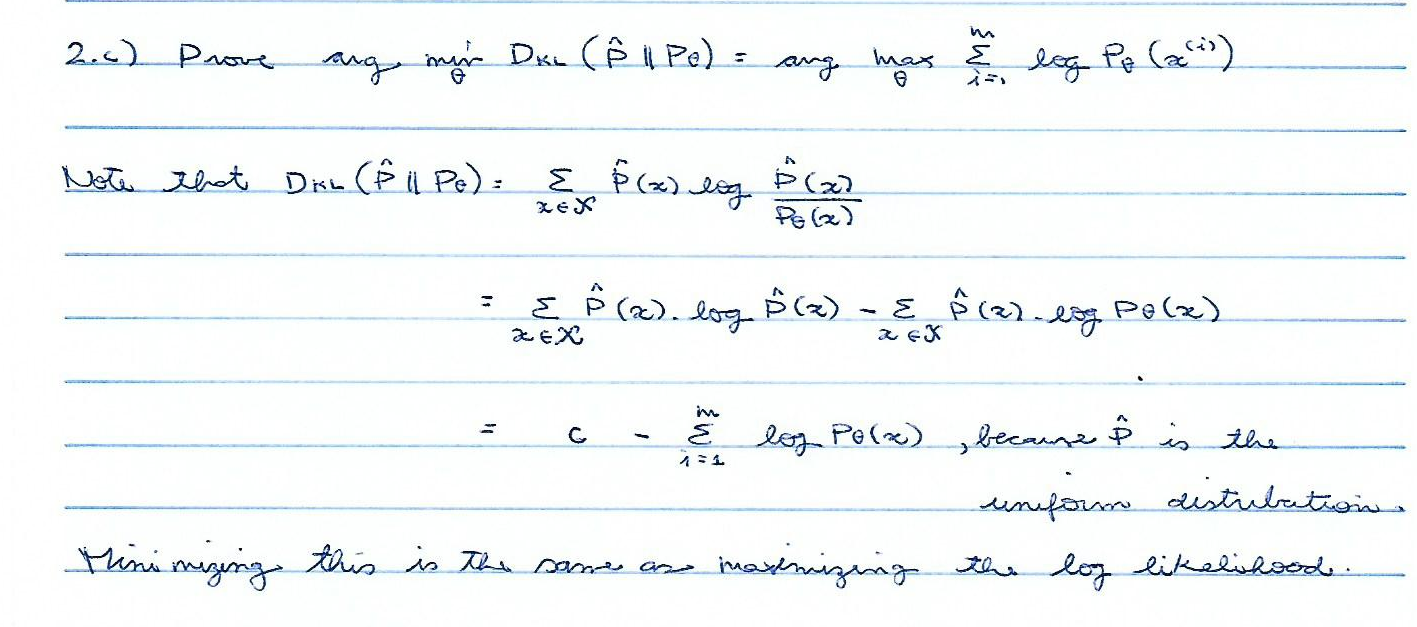 2.c) Prove arg min_θ D_KL (P̂ || P_θ) = arg max_θ Σ_{i=1}^{m} log P_θ (x^{(i)})
Note that D_KL (P̂ || P_θ) = Σ_{x∈X} P̂(x) log P̂(x) / P_θ(x)
= Σ_{x∈X} P̂(x). log P̂(x) - Σ_{x∈X} P̂(x). log P_θ(x)
= c - Σ_{i=1}^{m} log P_θ(x) , because P̂ is the
uniform distribution.
Minimizing this is the same as maximizing the log likelihood.